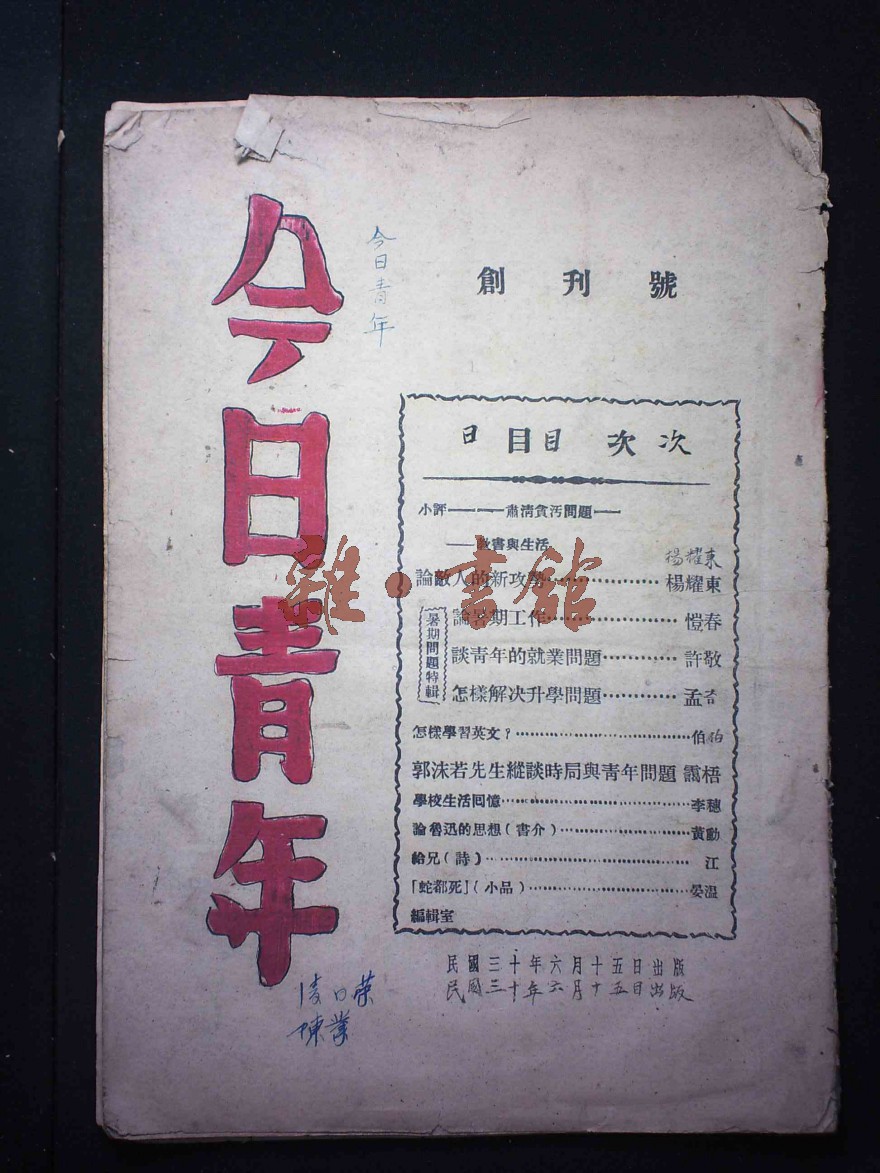 今日青年
今日青年
創刊號
日 目目 次次
小評———肅清貪污問題——
——教書與生活
楊耀東
論敵人的新攻勢……………楊耀東
暑期問題特輯
論暑期工作……………愷春
談青年的就業問題………許敬
怎樣解决升學問題…………孟
怎樣學習英文?……………………伯伯
郭沫若先生縱談時局與青年問題 靄梧
學校生活回憶……………………李穗
論魯迅的思想(書介)………………黃勳
給兄(詩)……………………江
「蛇都死」(小品)……………………晏溫
編輯室
民國三十年六月十五日出版
民國三十年六月十五日出版
陳業
雜·書館